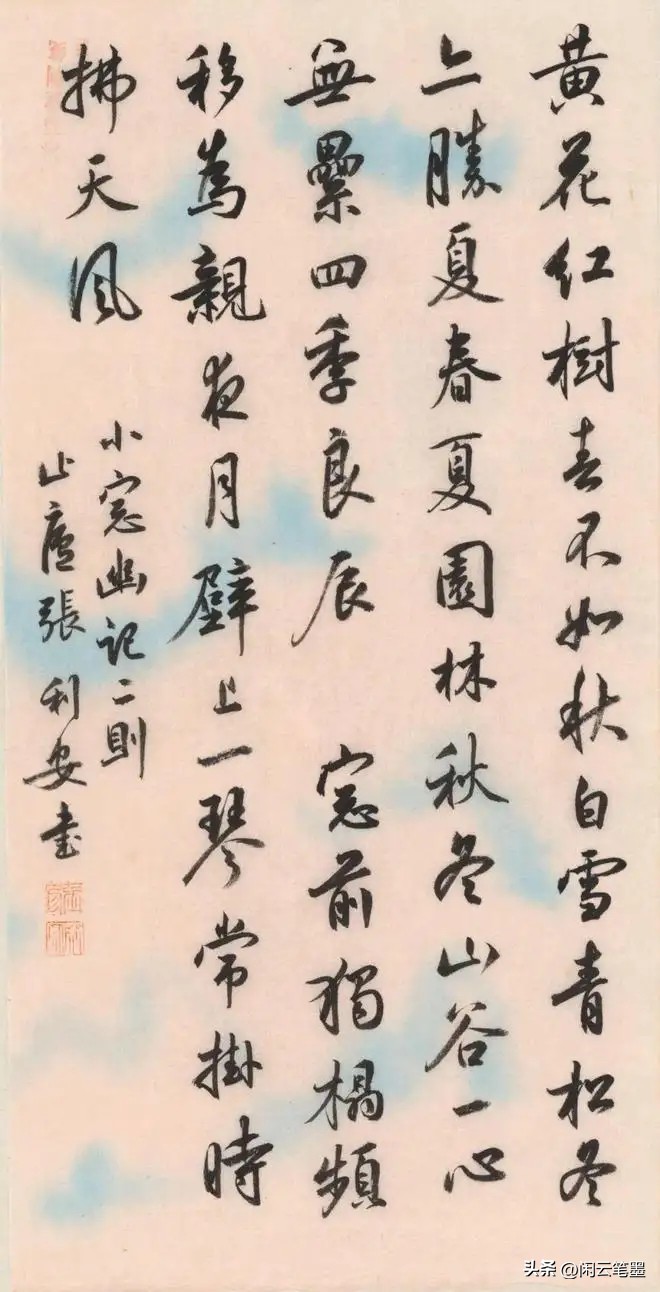 黄花红樹春不如秋白雪青松冬
亦勝夏春夏園林秋冬山谷一心
無累四季良辰 窓前獨榻頻
移為親夜月壁上一琴常掛時
拂天風
小窓幽記二則
止廬張利安書
头条 @闲云笔墨